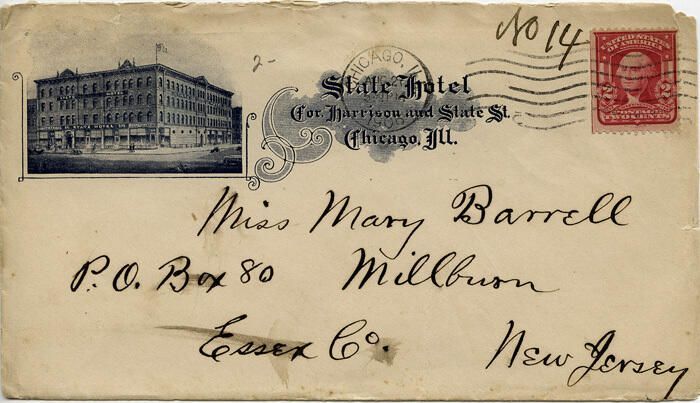 2-
No 14
CHICAGO, ILL
State Hotel
Cor. Harrison and State St.
Chicago, Ill.
UNITED STATES
OF AMERICA
2 2
POSTAGE
TWO CENTS
Miss Mary Barrell
P.O. Box 80 Millburn
Essex Co. New Jersey